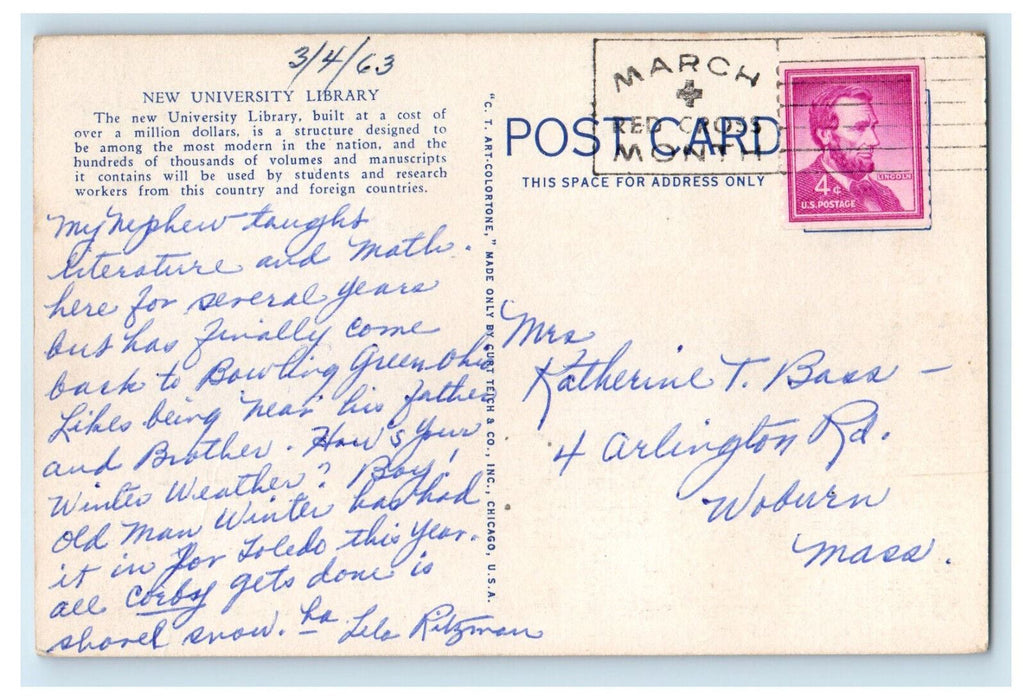 3/4/63
NEW UNIVERSITY LIBRARY
The new University Library, built at a cost of
over a million dollars, is a structure designed to
be among the most modern in the nation, and the
hundreds of thousands of volumes and manuscripts
it contains will be used by students and research
workers from this country and foreign countries.
My Nephew taught
literature and Math.
here for several years
but has finally come
back to Bowling Green Ohio
Likes being near his father
and Brother. How's your
Winter Weather? Boy!
Old Man Winter has had
it in for Toledo this year.
all Corby gets done is
shovel snow. ha Lela Ritzman
"C. T. ART-COLORTONE," MADE ONLY BY CURT TEICH & CO., INC., CHICAGO, U.S.A.
MARCH
RED CROSS
MONTH
POST CARD
THIS SPACE FOR ADDRESS ONLY
LINCOLN
4¢
U.S. POSTAGE
Mrs
Katherine T. Bass –
4 Arlington Rd.
Woburn
Mass.